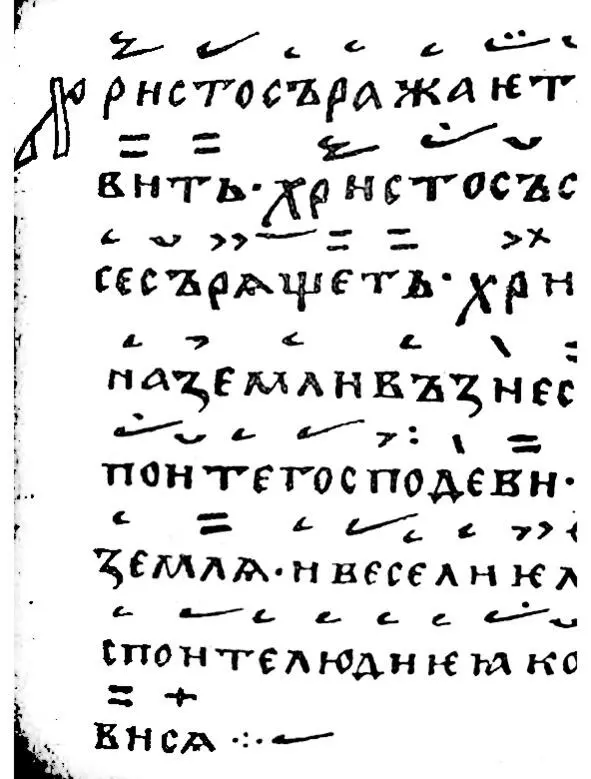 Христосъражаѥт
вить·христосъс
сесъращеть·хри
наземливъзнес
поитегосподеви·
землѧ·ивеселиѥл
споителюдиѥꙗко
висѧ·:·